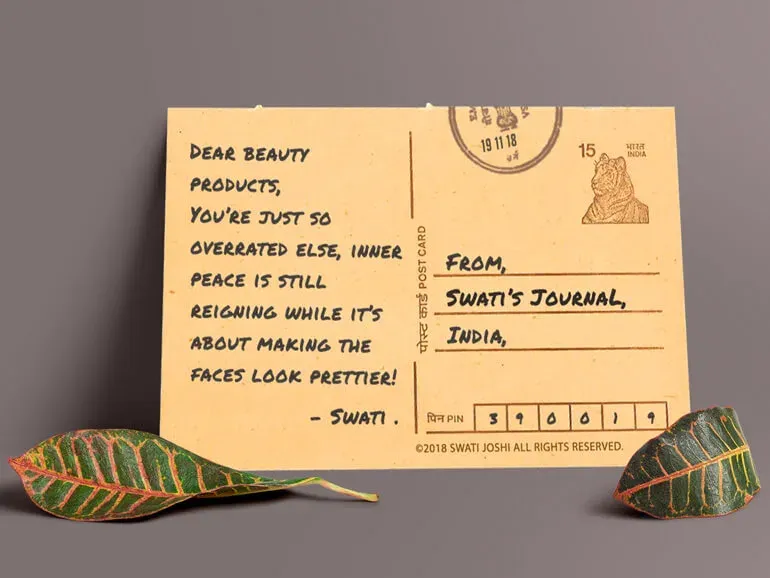 DEAR BEAUTY
PRODUCTS,
YOU'RE JUST SO
OVERRATED ELSE, INNER
PEACE IS STILL
REIGNING WHILE IT'S
ABOUT MAKING THE
FACES LOOK PRETTIER!
- SWATI .
19 11 18
15
भारत
INDIA
पोस्ट कार्ड POST CARD
FROM,
SWATI'S JOURNAL,
INDIA,
पिन PIN 3 9 0 0 1 9
©2018 SWATI JOSHI ALL RIGHTS RESERVED.